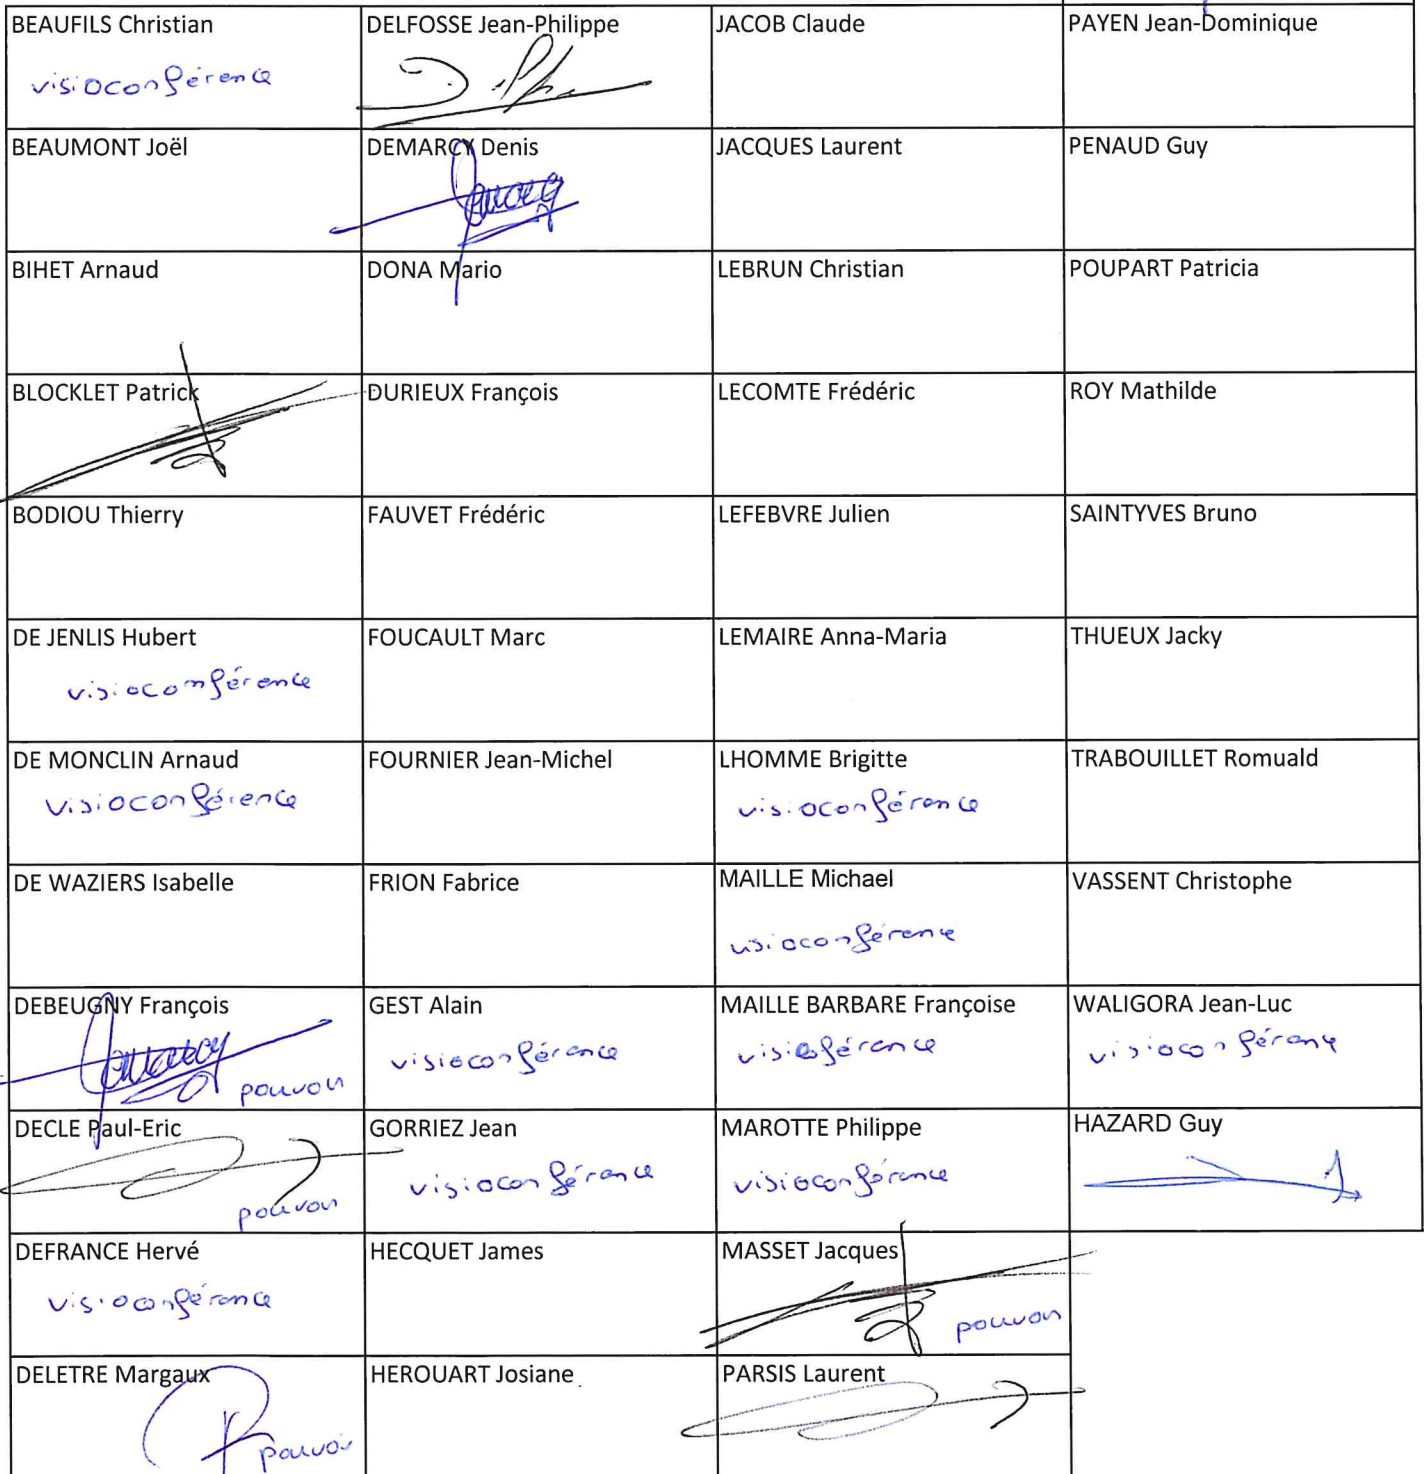 BEAUFILS Christian
visioconférence
DELFOSSE Jean-Philippe
JACOB Claude
PAYEN Jean-Dominique
BEAUMONT Joël
DEMARCY Denis
JACQUES Laurent
PENAUD Guy
BIHET Arnaud
DONA Mario
LEBRUN Christian
POUPART Patricia
BLOCKLET Patrick
DURIEUX François
LECOMTE Frédéric
ROY Mathilde
BODIOU Thierry
FAUVET Frédéric
LEFEBVRE Julien
SAINTYVES Bruno
DE JENLIS Hubert
visioconférence
FOUCAULT Marc
LEMAIRE Anna-Maria
THUEUX Jacky
DE MONCLIN Arnaud
visioconférence
FOURNIER Jean-Michel
LHOMME Brigitte
visioconférence
TRABOUILLET Romuald
DE WAZIERS Isabelle
FRION Fabrice
MAILLE Michael
visioconférence
VASSENT Christophe
DEBEUGNY François
pouvoir
GEST Alain
visioconférence
MAILLE BARBARE Françoise
WALIGORA Jean-Luc
visioconférence
DECLE Paul-Eric
pouvoir
GORRIEZ Jean
visioconférence
MAROTTE Philippe
visioconférence
HAZARD Guy
DEFRANCE Hervé
visioconférence
HECQUET James
MASSET Jacques
pouvoir
DELETRE Margaux
pouvoir
HEROUART Josiane
PARSIS Laurent